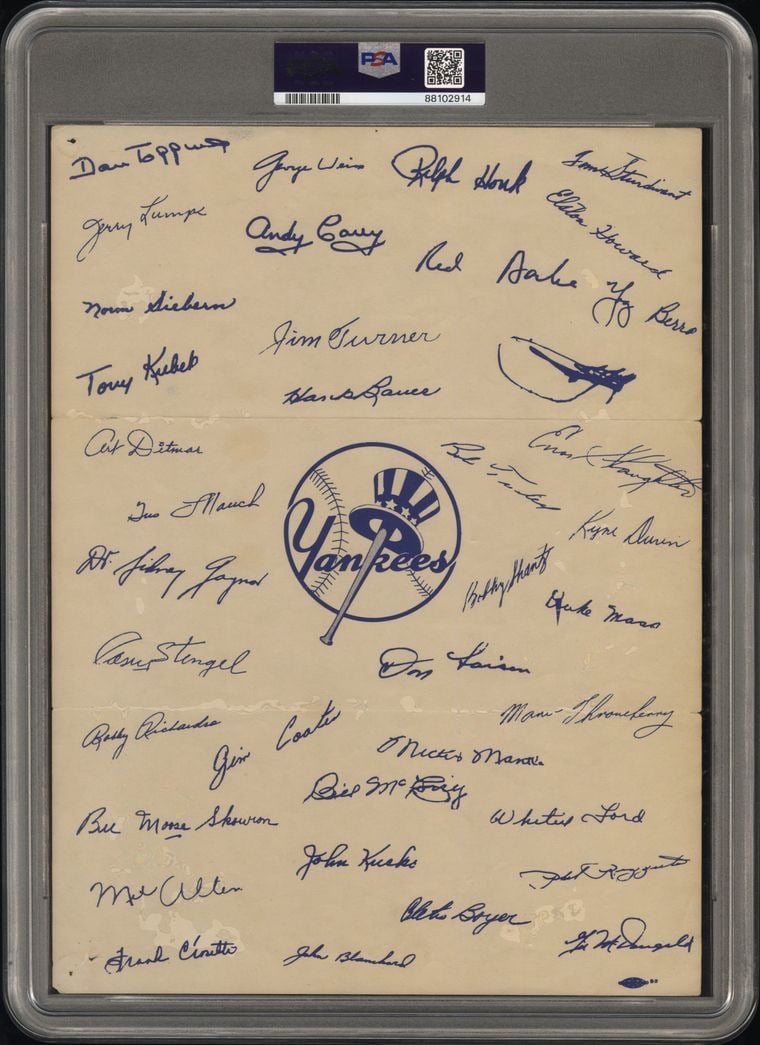 PSA
88102914
Dan Topping
George Weiss
Ralph Houk
Tom Sturdivant
Jerry Lumpe
Andy Carey
Elston Howard
Red
Yogi Berra
Norm Siebern
Jim Turner
Tony Kubek
Hank Bauer
Art Ditmar
Enos Slaughter
Bob Turley
Gus Mauch
Ryne Duren
Yankees
Dr. Sidney Gaynor
Bobby Shantz
Duke Maas
Casey Stengel
Don Larsen
Marv Throneberry
Bobby Richardson
Jim Coates
Mickey Mantle
Bill
Bill Moose Skowron
Whitey Ford
John Kucks
Phil Rizzuto
Mel Allen
Clete Boyer
Frank Crosetti
John Blanchard
Gil McDougald